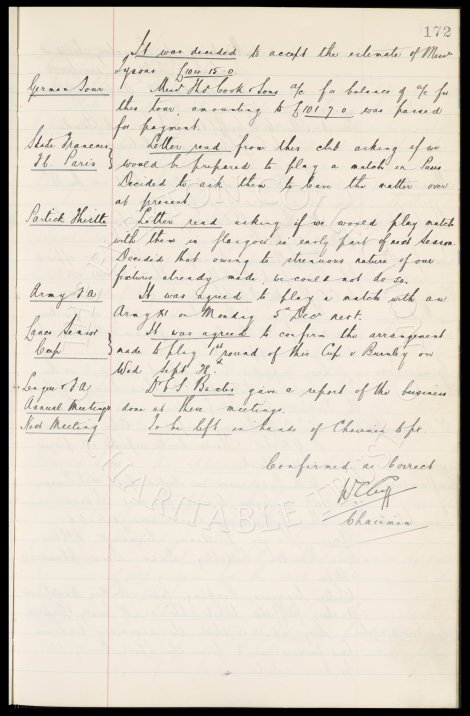 172
It was decided to accept the estimate of Messrs
Dysons £100 15 0.
German Tour Messrs Thos Cook & Sons a/c for balance of a/c for
this tour, amounting to £101 7 0 was passed
for payment.
Stade Francais Letter read from this club asking if we
Fb. Paris would be prepared to play a match in Paris
Decided to ask them to leave the matter over
at present
Partick Thistle Letter read asking if we would play match
with them in Glasgow in early part of next season
Decided that owing to strenuous nature of our
fixtures already made, we could not do so.
Army F A It was agreed to play a match with an
Army XI on Monday 5th Decr next.
Lancs Senior It was agreed to confirm the arrangement
Cup made to play 1st round of this Cup v Burnley on
Wed Sept 28.
League & F A Dr Baxter gave a report of the business
Annual Meetings done at these meetings.
Next Meeting To be left in hands of Chairman to fix.
Confirmed as Correct
W C Cuff
Chairman
CHARITABLE TRUST